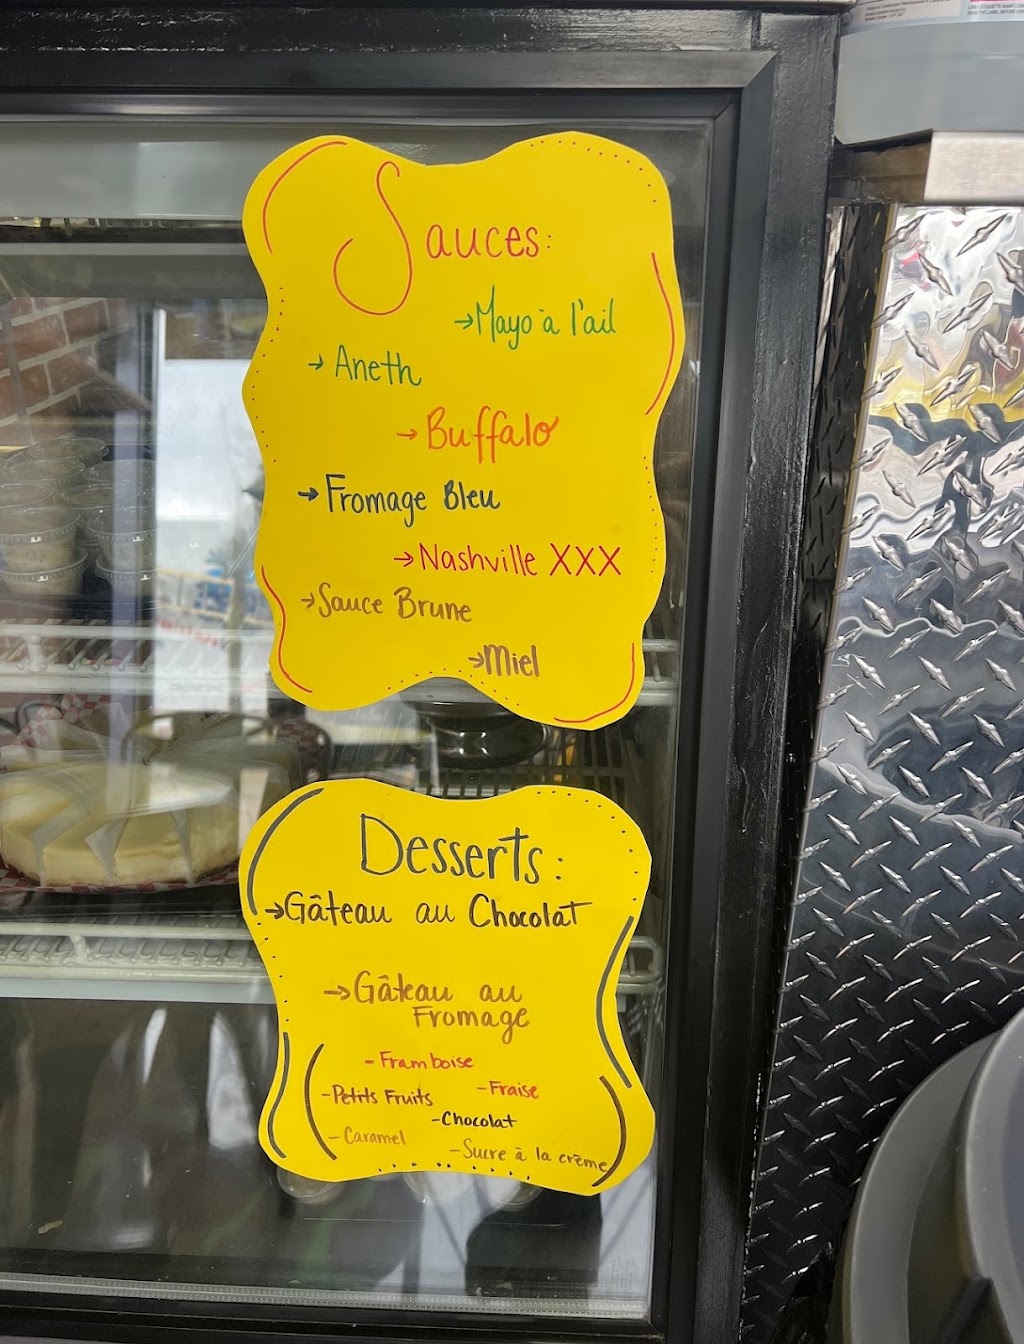 Sauces:
→Mayo à l'ail
→ Aneth
→ Buffalo
→ Fromage Bleu
→ Nashville XXX
→ Sauce Brune
→ Miel
Desserts:
→Gâteau au Chocolat
→Gâteau au
Fromage
- Framboise
- Petits Fruits
- Fraise
- Chocolat
- Caramel
- Sucre à la crème